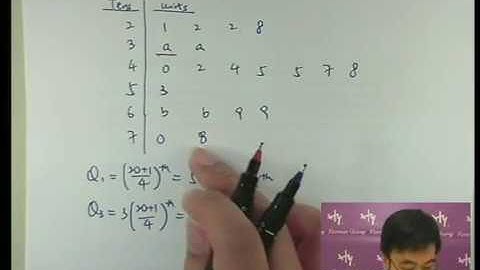 Tens | Units
2 | 1 2 2 8
3 | a a
4 | 0 2 4 5 5 7 8
5 | 3
6 | b b 9 9
7 | 0 8
Q₁ = (20+1/4)^th = 5 th
Q₃ = 3(20+1/4)^th =